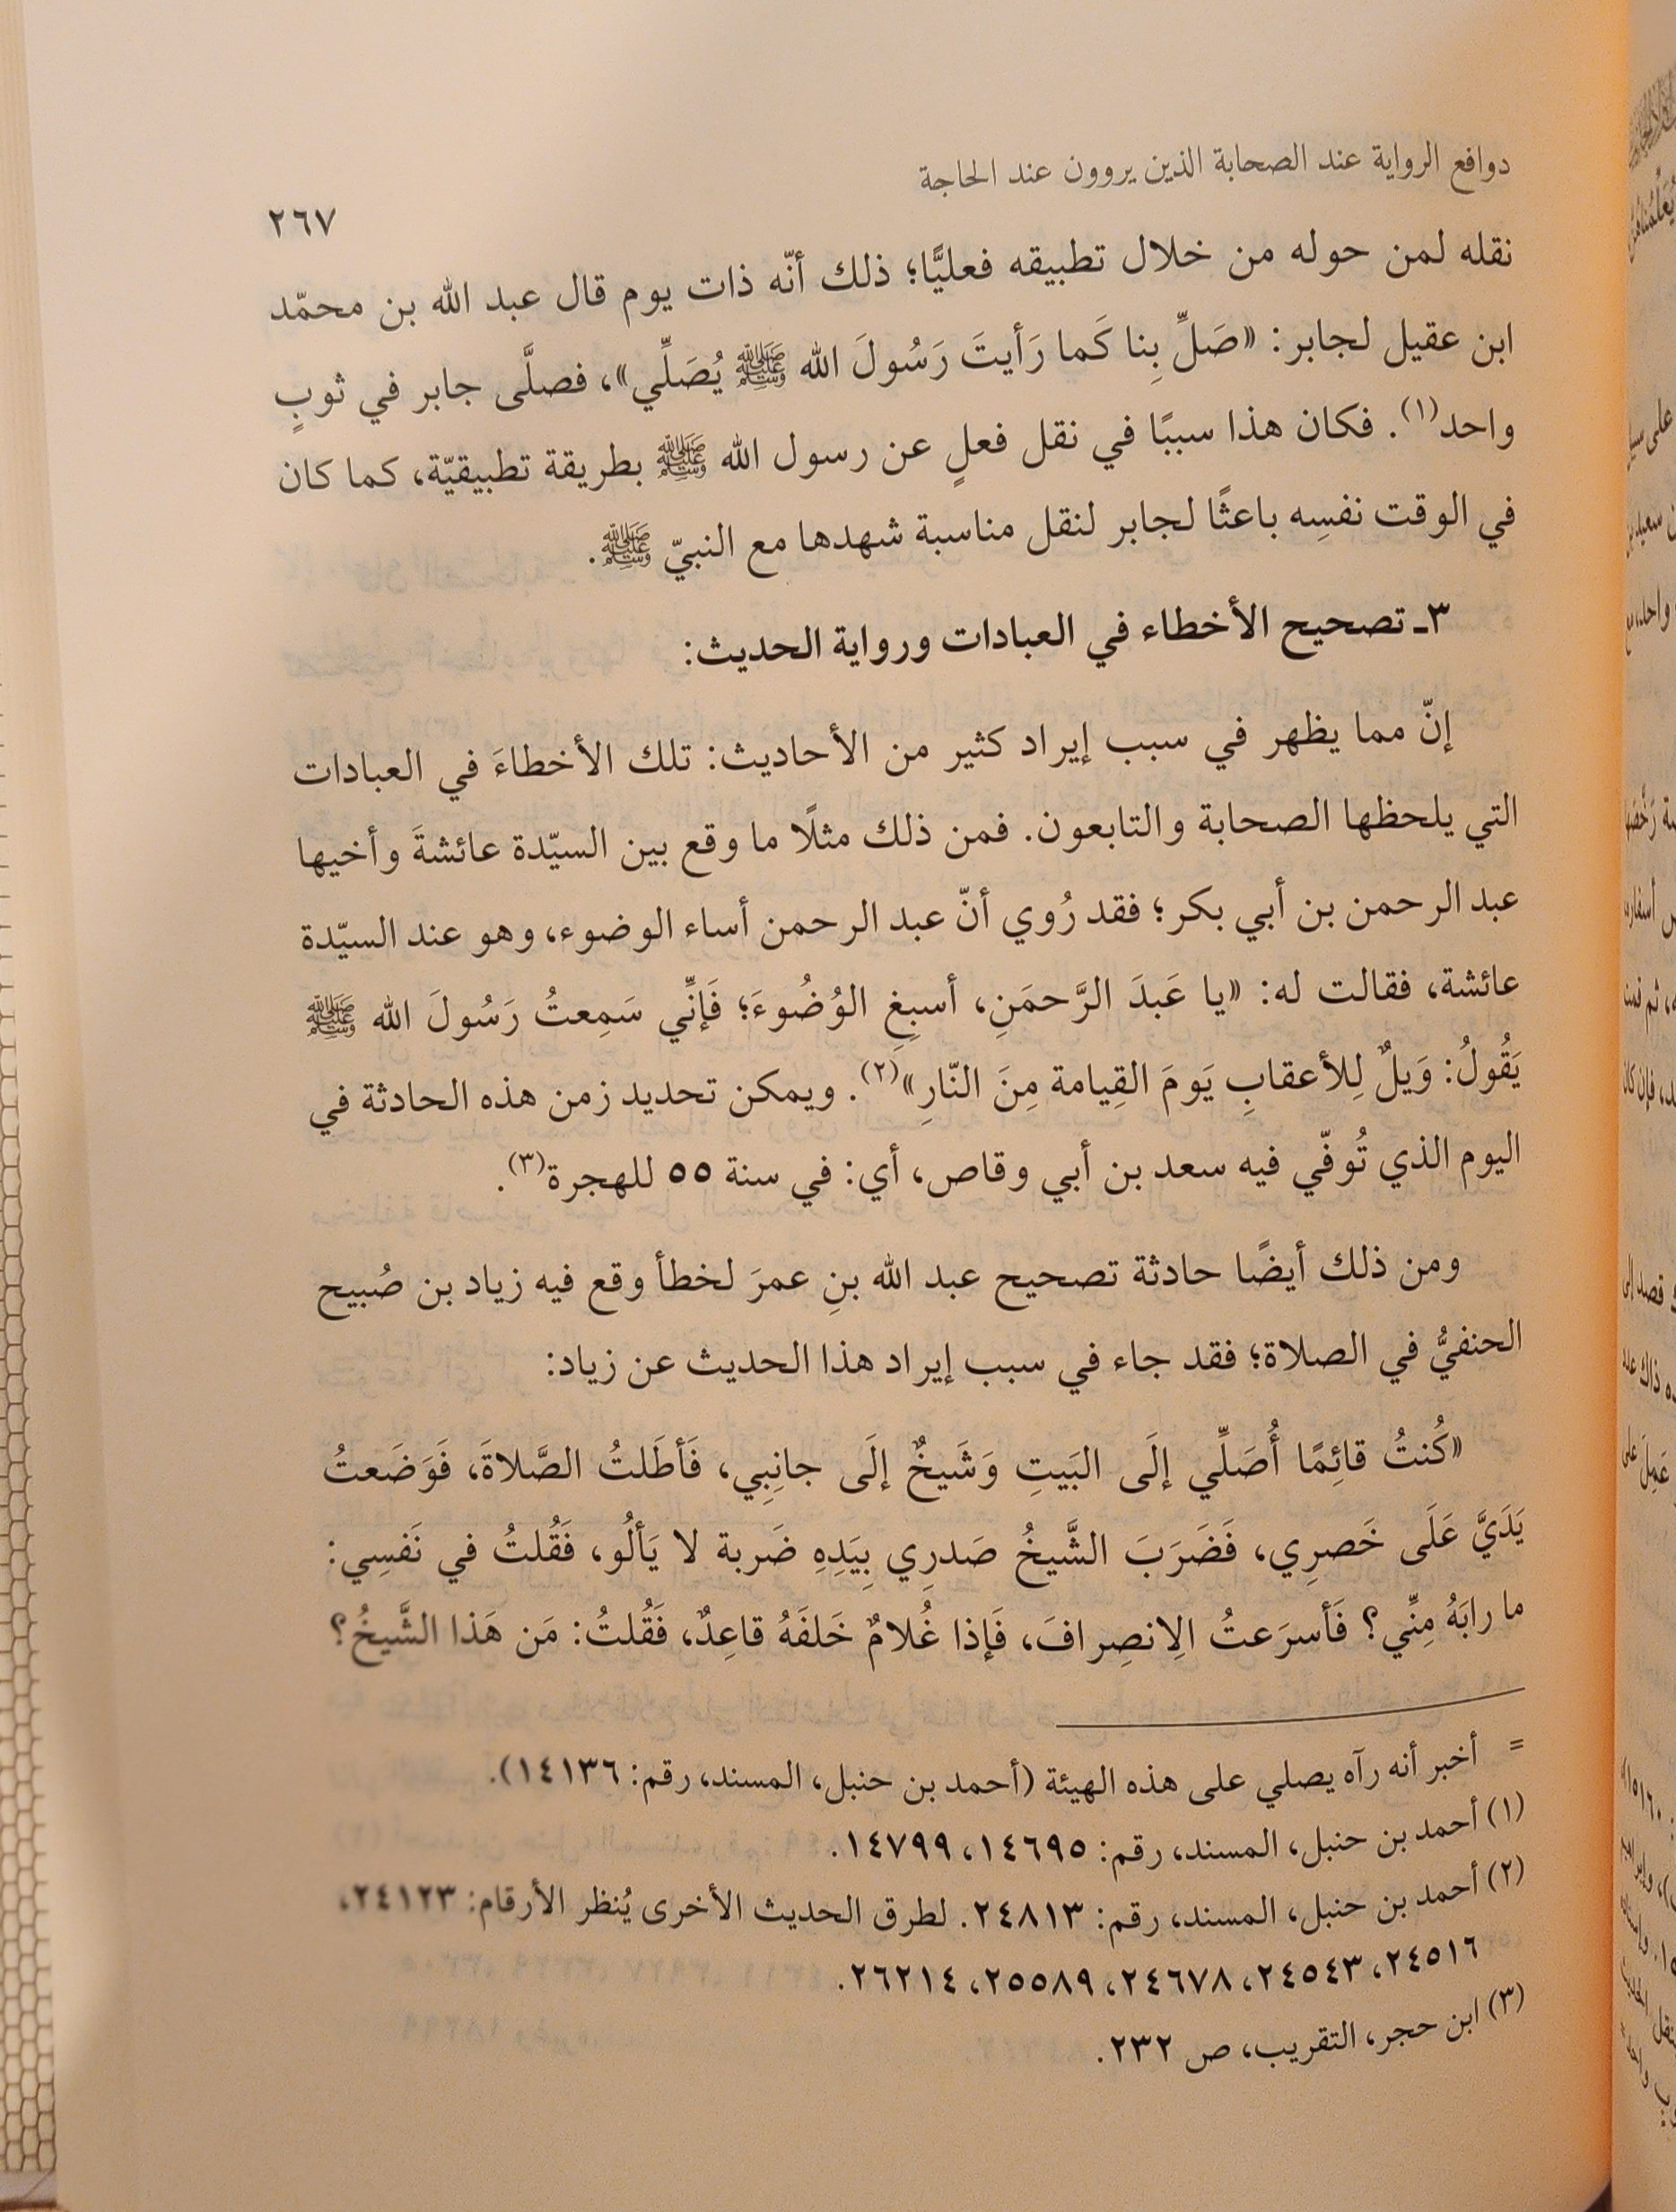 دوافع الرواية عند الصحابة الذين يروون عند الحاجة
٢٦٧
نقله لمن حوله من خلال تطبيقه فعليًّا؛ ذلك أنّه ذات يوم قال عبد الله بن محمّد
ابن عقيل لجابر: «صَلِّ بِنا كَما رَأيتَ رَسُولَ الله ﷺ يُصَلِّي»، فصلَّى جابر في ثوبٍ
واحد(١). فكان هذا سببًا في نقل فعلٍ عن رسول الله ﷺ بطريقة تطبيقيّة، كما كان
في الوقت نفسِه باعثًا لجابر لنقل مناسبة شهدها مع النبيّ ﷺ.
٣ـ تصحيح الأخطاء في العبادات ورواية الحديث:
إنّ مما يظهر في سبب إيراد كثير من الأحاديث: تلك الأخطاءَ في العبادات
التي يلحظها الصحابة والتابعون. فمن ذلك مثلًا ما وقع بين السيّدة عائشةَ وأخيها
عبد الرحمن بن أبي بكر؛ فقد رُوي أنّ عبد الرحمن أساء الوضوء، وهو عند السيّدة
عائشة، فقالت له: «يا عَبدَ الرَّحمَنِ، أسبِغِ الوُضُوءَ؛ فَإنِّي سَمِعتُ رَسُولَ الله ﷺ
يَقُولُ: وَيلٌ لِلأعقابِ يَومَ القِيامة مِنَ النّارِ»(٢). ويمكن تحديد زمن هذه الحادثة في
اليوم الذي تُوفّي فيه سعد بن أبي وقاص، أي: في سنة ٥٥ للهجرة(٣).
ومن ذلك أيضًا حادثة تصحيح عبد الله بنِ عمرَ لخطأ وقع فيه زياد بن صُبيح
الحنفيُّ في الصلاة؛ فقد جاء في سبب إيراد هذا الحديث عن زياد:
«كُنتُ قائِمًا أُصَلِّي إلَى البَيتِ وَشَيخٌ إلَى جانِبِي، فَأطَلتُ الصَّلاةَ، فَوَضَعتُ
يَدَيَّ عَلَى خَصرِي، فَضَرَبَ الشَّيخُ صَدرِي بِيَدِهِ ضَربة لا يَألُو، فَقُلتُ في نَفسِي:
ما رابَهُ مِنِّي؟ فَأسرَعتُ الِانصِرافَ، فَإذا غُلامٌ خَلفَهُ قاعِدٌ، فَقُلتُ: مَن هَذا الشَّيخُ؟
= أخبر أنه رآه يصلي على هذه الهيئة (أحمد بن حنبل، المسند، رقم: ١٤١٣٦).
(١) أحمد بن حنبل، المسند، رقم: ١٤٦٩٥، ١٤٧٩٩.
(٢) أحمد بن حنبل، المسند، رقم: ٢٤٨١٣. لطرق الحديث الأخرى يُنظر الأرقام: ٢٤١٢٣،
٢٤٥١٦، ٢٤٥٤٣، ٢٤٦٧٨، ٢٥٥٨٩، ٢٦٢١٤.
(٣) ابن حجر، التقريب، ص ٢٣٢.